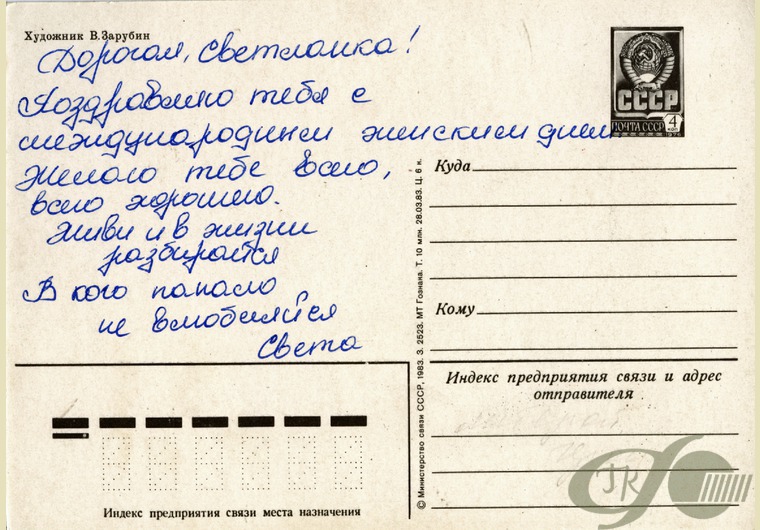 Художник В.Зарубин
Дорогая, Светланка!
Поздравляю тебя с
международным женским днем
Желаю тебе всего,
всего хорошего.
Живи и в жизни
разбирайся
В кого попало
не влюбляйся
Света
СССР
ПОЧТА СССР 4 коп
1976
Куда
Кому
Индекс предприятия связи и адрес
отправителя
Индекс предприятия связи места назначения
© Министерство связи СССР, 1983. З. 2523. МТ Гознака. Т. 10 млн. 28.03.83. Ц. 6 к.